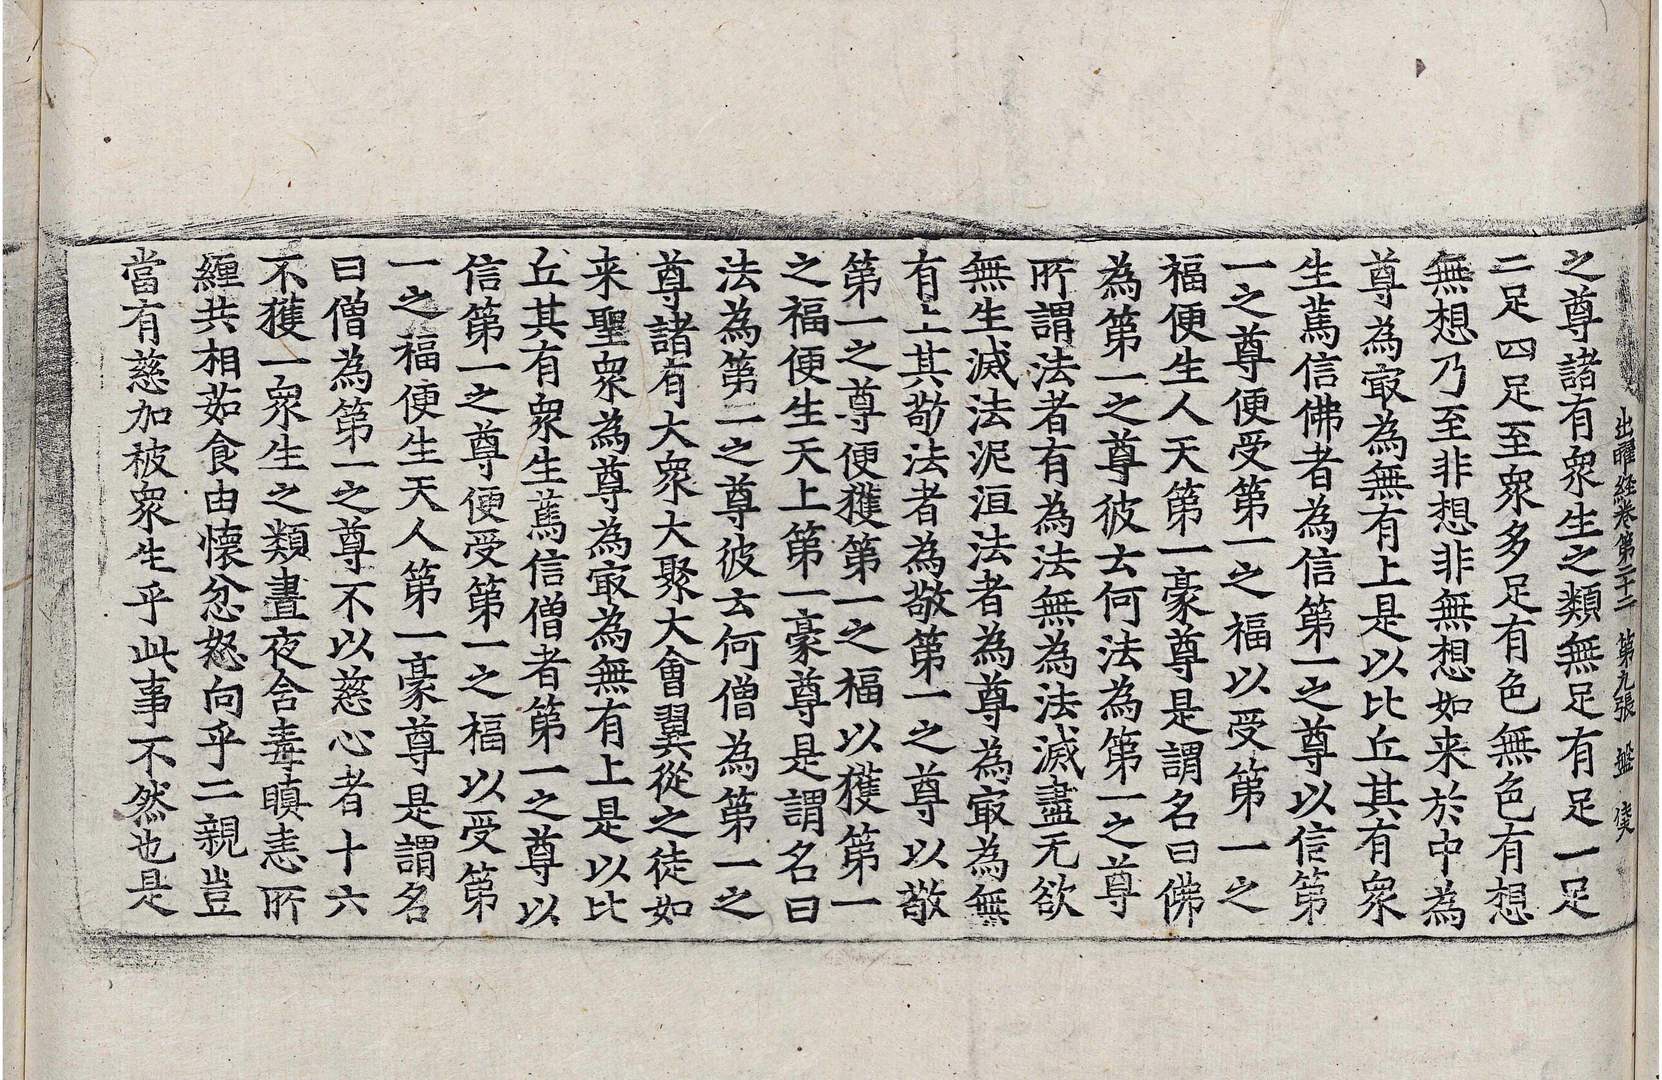 出曜經卷第二十二 第九張 盤
之尊諸有衆生之類無足有足一足
二足四足至衆多足有色無色有想
無想乃至非想非無想如来於中為
尊為㝡為無有上是以比丘其有衆
生篤信佛者為信第一之尊以信第
一之尊便受第一之福以受第一之
福便生人天第一豪尊是謂名曰佛
為第一之尊彼云何法為第一之尊
所謂法者有為法無為法滅盡无欲
無生滅法泥洹法者為尊為㝡為無
有上其敬法者為敬第一之尊以敬
第一之尊便獲第一之福以獲第一
之福便生天上第一豪尊是謂名曰
法為第一之尊彼云何僧為第一之
尊諸有大衆大聚大會翼從之徒如
来聖衆為尊為㝡為無有上是以比
丘其有衆生篤信僧者第一之尊以
信第一之尊便受第一之福以受第
一之福便生天人第一豪尊是謂名
曰僧為第一之尊不以慈心者十六
不獲一衆生之類晝夜含毒瞋恚所
纏共相茹食由懷忿怒向乎二親豈
當有慈加被衆生乎此事不然也是